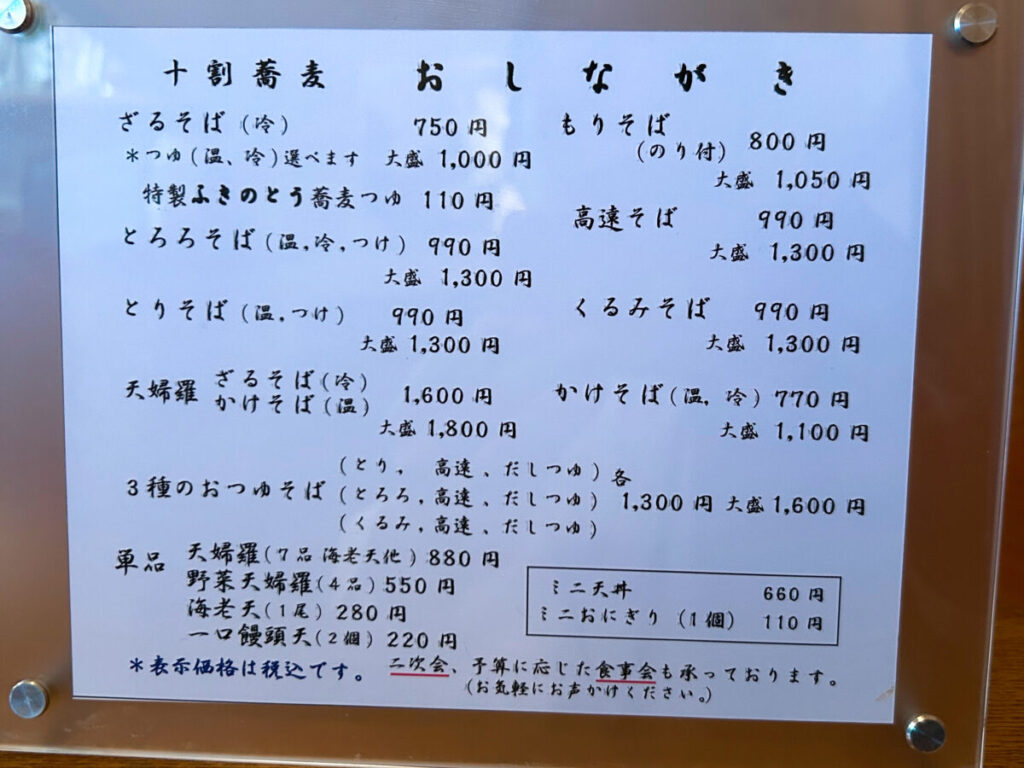 十割蕎麦 おしながき
ざるそば(冷) 750円
*つゆ(温、冷)選べます 大盛 1,000円
特製ふきのとう蕎麦つゆ 110円
とろろそば(温,冷,つけ) 990円
大盛 1,300円
とりそば(温,つけ) 990円
大盛 1,300円
もりそば
(のり付) 800円
大盛 1,050円
高遠そば 990円
大盛 1,300円
くるみそば 990円
大盛 1,300円
天婦羅 ざるそば(冷)
かけそば(温) 1,600円
大盛 1,800円
かけそば(温,冷) 770円
大盛 1,100円
3種のおつゆそば
(とり, 高遠、だしつゆ)
(とろろ,高遠、だしつゆ)
(くるみ,高遠、だしつゆ)
各 1,300円 大盛 1,600円
単品 天婦羅(7品 海老天他) 880円
野菜天婦羅(4品) 550円
海老天(1尾) 280円
一口饅頭天(2個) 220円
ミニ天丼 660円
ミニおにぎり(1個) 110円
*表示価格は税込です。
二次会、予算に応じた食事会も承っております。
(お気軽にお声かけください。)